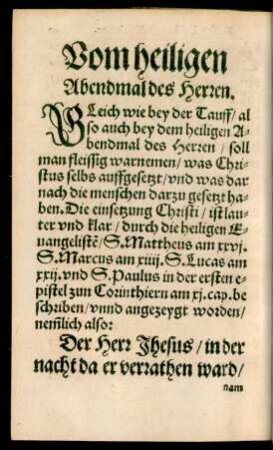 Vom heiligen
Abendmal des Herren.
GLeich wie bey der Tauff/ al
so auch bey dem heiligen A⸗
bendmal des Herren / soll
man fleissig warnemen/ was Chri⸗
stus selbs auffgesetzt/ vnd was dar
nach die menschen darzu gesetzt ha⸗
ben. Die einsetzung Christi/ ist lau⸗
ter vnd klar / durch die heiligen E⸗
uangelistẽ/ S. Mattheus am xxvj.
S. Marcus am xiiij. S. Lucas am
xxij. vnd S. Paulus in der ersten e⸗
pistel zum Corinthiern am xj. cap. be
schriben/ vnnd angezeygt worden/
nem̃lich also:
Der Herr Jhesus / in der
nacht da er verrathen ward/
nam